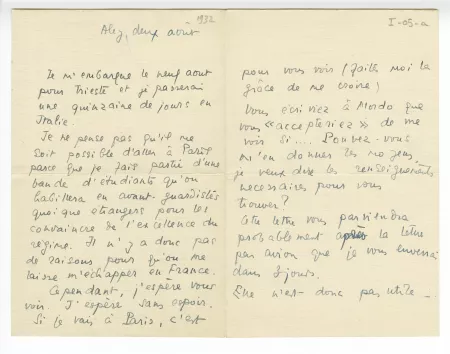 1932
Alex, deux août
Je m'embarque le neuf aout
pour Trieste et j'y passerai
une quinzaine de jours en
Italie.
Je ne pense pas qu'il me
soit possible d'aller à Paris
parce que je fais partie d'une
bande d'étudiants qu'on
habillera en avant-guardistes
quoique etrangers pour les
convaincre de l'excellence du
régime. Il n'y a donc pas
de raisons pour qu'on me
laisse m'échapper en France.
Cependant, j'espère vous
voir. J'espère sans espoir.
Si je vais à Paris, c'est
I-05-a
pour vous voir (faites moi la
grâce de me croire)
Vous écriviez à Mordo que
vous «accepteriez» de me
voir si .... Pouvez-vous
m'en donner les moyens,
je veux dire les renseignements
necessaires pour vous
trouver?
Cette lettre vous parviendra
probablement après la lettre
par avion que je vous enverrai
dans 8 jours.
Elle n'est donc pas utile ...